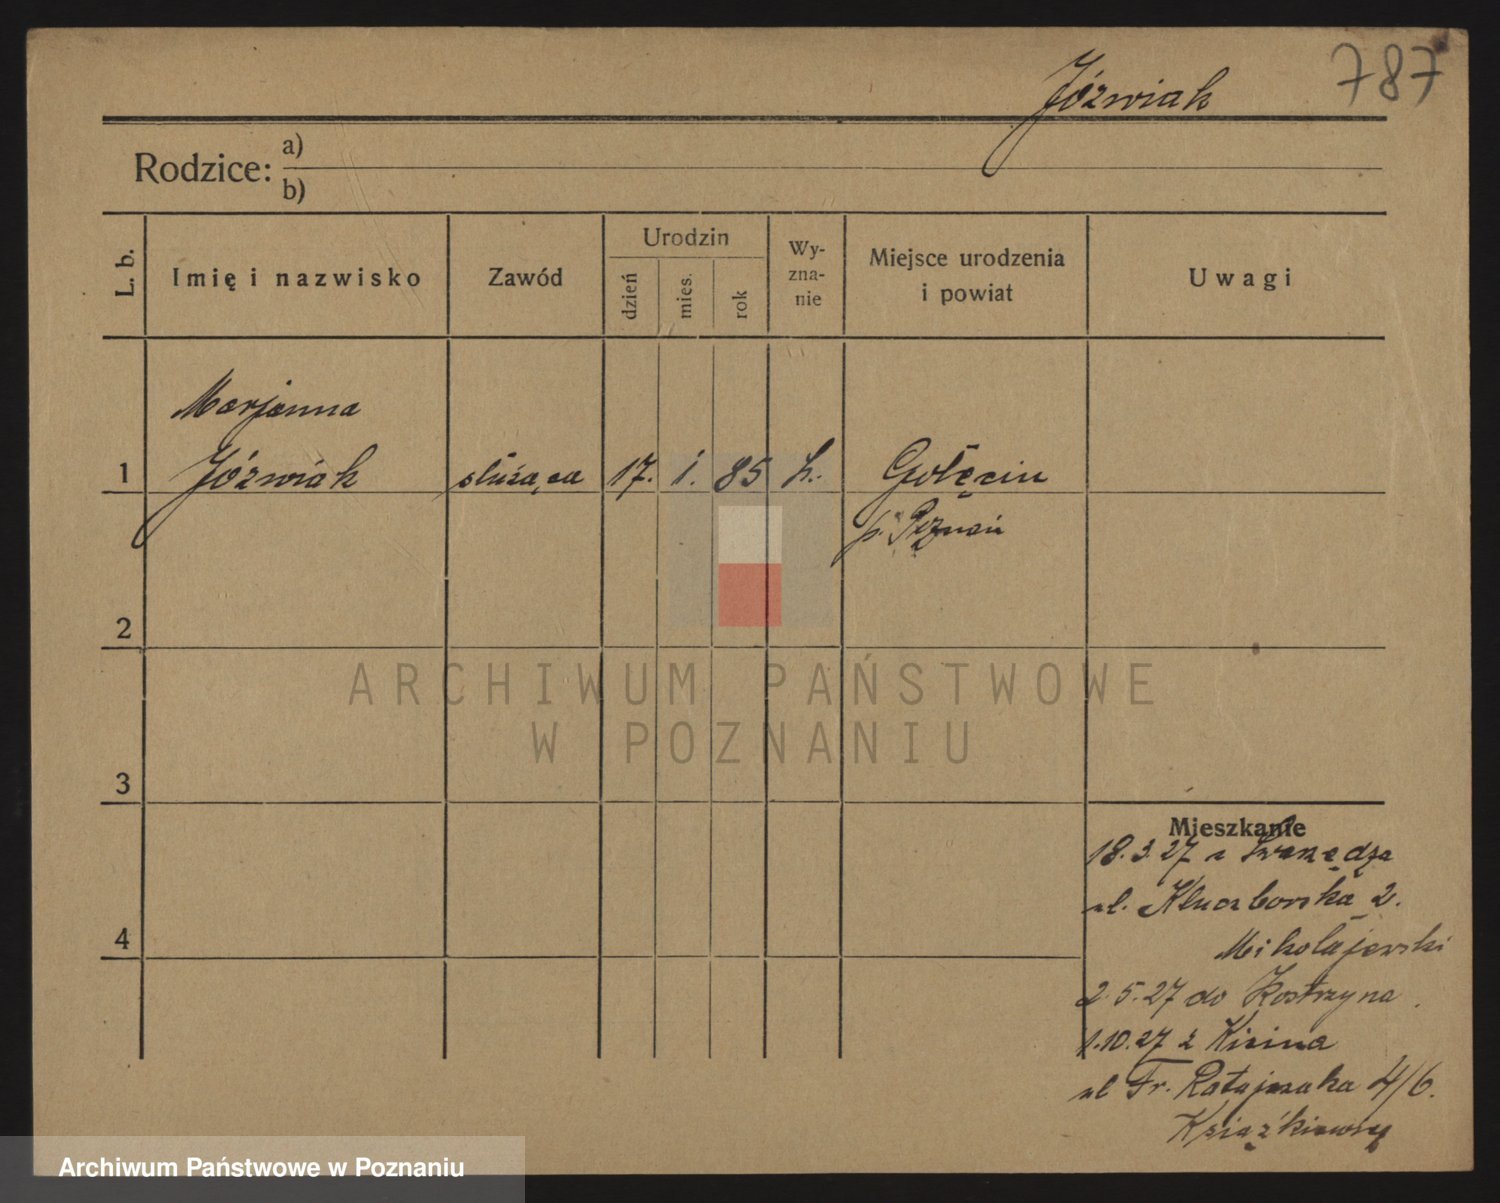 787
Jóźwiak
Rodzice: a)
b)
L. b.
Imię i nazwisko
Zawód
Urodzin
dzień
mies.
rok
Wy-
zna-
nie
Miejsce urodzenia
i powiat
Uwagi
Marjanna
1 Jóźwiak służąca 17. 1. 85 k. Golęcin
p. Poznań
2
3
4
ARCHIWUM PAŃSTWOWE
W POZNANIU
Mieszkanie
18.3.27 z Swarzędza
ul. Kluczborska 2.
Mikołajewski
2.5.27 do Kostrzyna
1.10.27 z
ul Fr. Ratajczaka 4/6.
Archiwum Państwowe w Poznaniu